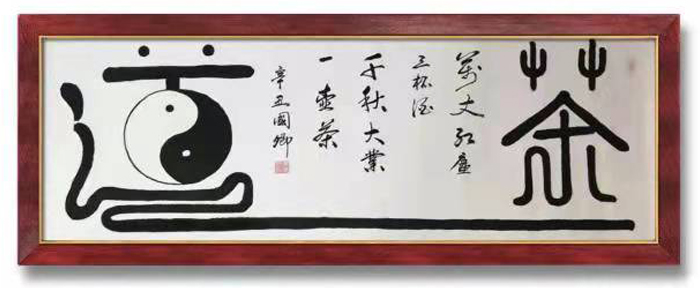 茶
萬丈紅塵
三杯酒
千秋大業
一壺茶
辛丑國卿
道